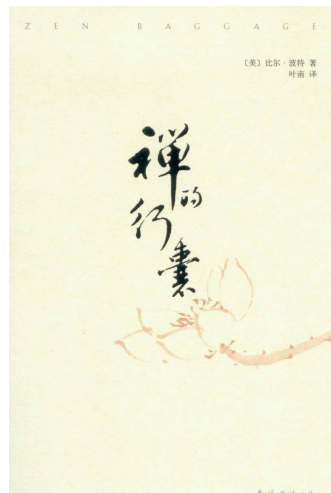 ZEN BAGGAGE
〔美〕比尔·波特 著
叶南 译
禅的
行囊